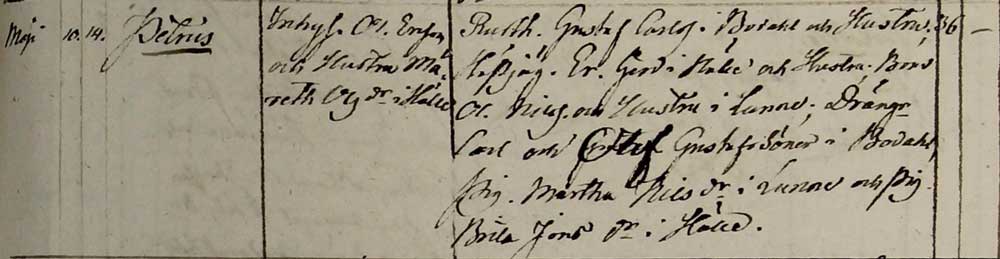 Maji 10. 14. Petrus
Inhys. Ol. Ersson
och Hustru Ma-
reth Ol dr i Hålie
Rusth. Gustaf Carls. i Bodahl och Hustru, 36 —
Er. Ers i Hålie och Hustru. Bond
Ol. Nils. och Hustru i Lunne. Drängr
Carl och Olof Gustafs Söner i Bodahl,
Pig. Martha Nils dr i Lunne och Pig.
Brita Jons dr i Hålie.